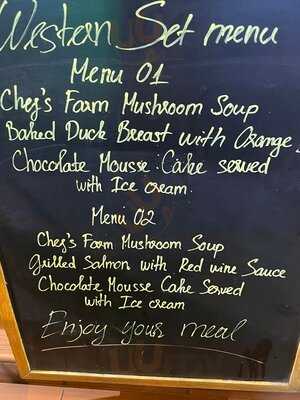 Western Set menu
Menu 01
Chef's Farm Mushroom Soup
Baked Duck Breast with Orange
Chocolate Mousse Cake served
with Ice cream
Menu 02
Chef's Farm Mushroom Soup
Grilled Salmon with Red wine Sauce
Chocolate Mousse Cake Served
with Ice cream
Enjoy your meal